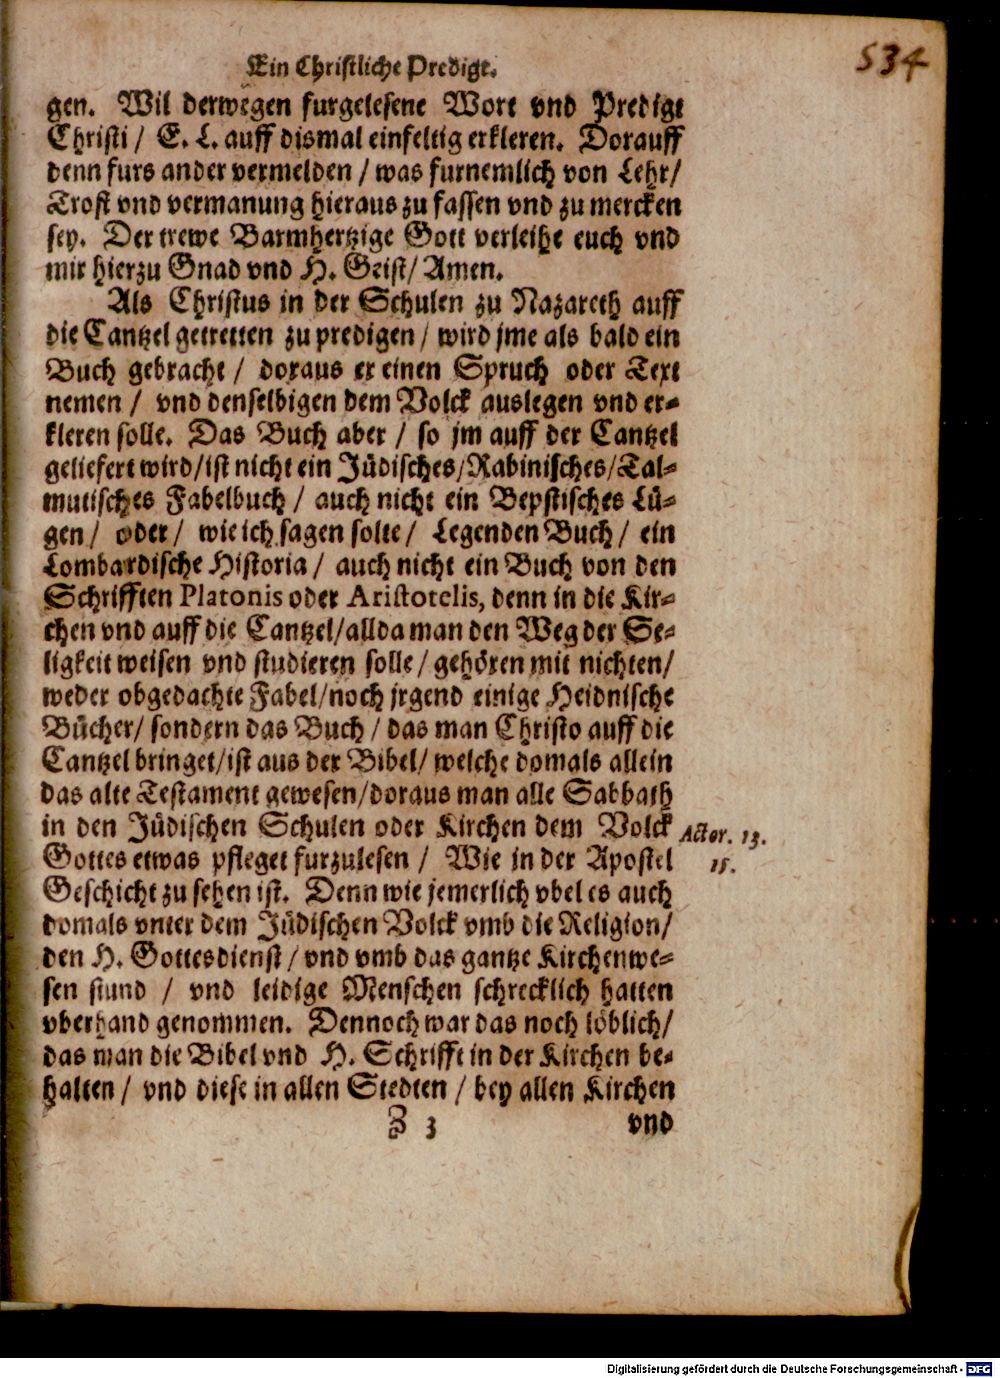 Ein Christliche Predigt.
534
gen. Wil derwegen furgelesene Wort vnd Predigt
Christi / E. L. auff dismal einfeltig erkleren. Dorauff
denn furs ander vermelden / was furnemlich von Lehr/
Trost vnd vermanung hieraus zu fassen vnd zu mercken
sey. Der trewe Barmhertzige Gott verleihe euch vnd
mir hierzu Gnad vnd H. Geist/ Amen.
Als Christus in der Schulen zu Nazareth auff
die Cantzel getretten zu predigen / wird jme als bald ein
Buch gebracht / doraus er einen Spruch oder Text
nemen / vnd denselbigen dem Volck auslegen vnd er-
kleren solle. Das Buch aber / so jm auff der Cantzel
geliefert wird/ist nicht ein Jüdisches/Rabinisches/Tal-
mutisches Fabelbuch / auch nicht ein Bepstisches Lü-
gen / oder / wie ich sagen solte / Legenden Buch / ein
Lombardische Historia / auch nicht ein Buch von den
Schrifften Platonis oder Aristotelis, denn in die Kir-
chen vnd auff die Cantzel/allda man den Weg der Se-
ligkeit weisen vnd studieren solle / gehören mit nichten/
weder obgedachte Fabel/noch jrgend einige Heidnische
Bücher/ sondern das Buch / das man Christo auff die
Cantzel bringet/ist aus der Bibel/ welche domals allein
das alte Testament gewesen/doraus man alle Sabbath
in den Jüdischen Schulen oder Kirchen dem Volck
Gottes etwas pfleget furzulesen / Wie in der Apostel
Geschicht zu sehen ist. Denn wie jemerlich vbel es auch
domals vnter dem Jüdischen Volck vmb die Religion/
den H. Gottesdienst / vnd vmb das gantze Kirchenwe-
sen stund / vnd leidige Menschen schrecklich hatten
vberhand genommen. Dennoch war das noch löblich/
das man die Bibel vnd H. Schrifft in der Kirchen be-
halten / vnd diese in allen Stedten / bey allen Kirchen
Actor. 13.
15.
Z 3
vnd
Digitalisierung gefördert durch die Deutsche Forschungsgemeinschaft - DFG